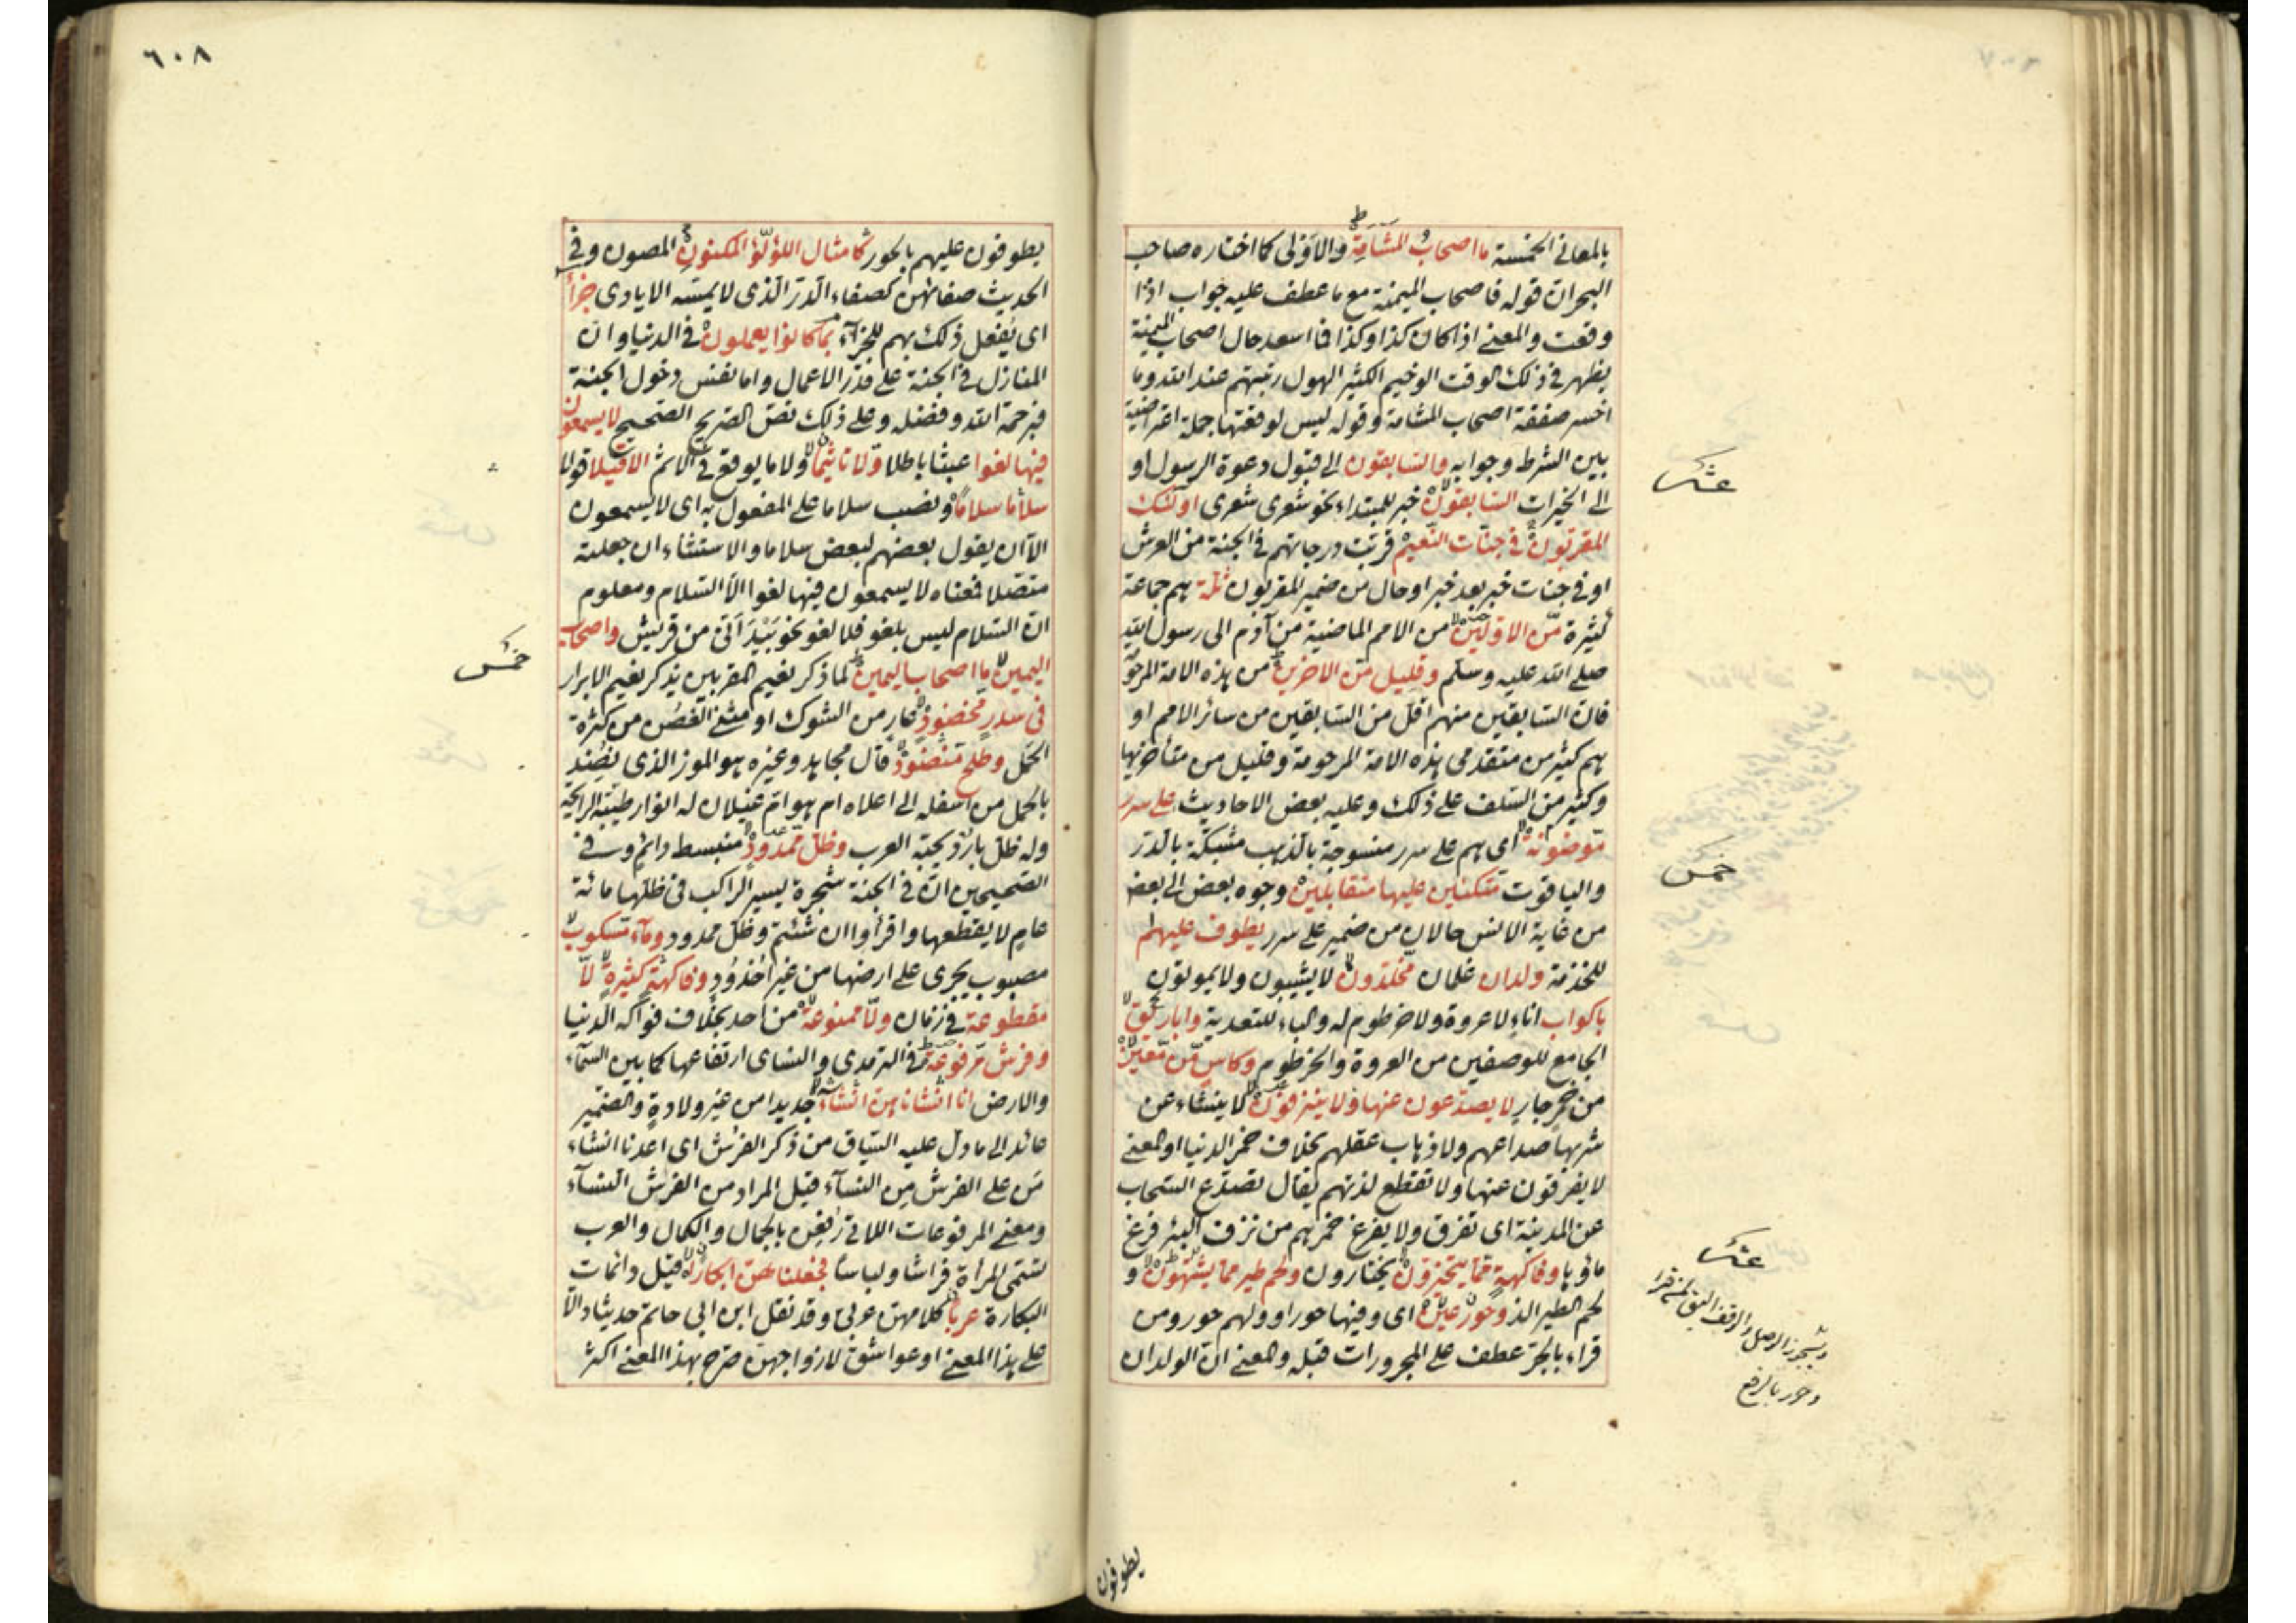 بالمعانى الخمسة ما اصحاب المشأمة والاولى كما اختاره صاحب
البحران قوله فاصحاب الميمنة مع ما عطف عليه جواب اذا
وقعت والمعنى اذا كان كذا وكذا فما اسعد حال اصحاب الميمنة
يظهر فى ذلك الوقت الوخيم الكثير الهول رتبتهم عند الله وما
اخسر صفقة اصحاب المشامة وقوله ليس لوقعتها جملة اعتراضية
بين الشرط وجوابه والسابقون الى قبول دعوة الرسول او
الى الخيرات السابقون خبر للمبتداء نحو شعرى شعرى اولئك
المقربون فى جنات النعيم قربت درجاتهم فى الجنة من العرش
او فى جنات خبر بعد خبر او حال من ضمير المقربون ثلة هم جماعة
كثيرة من الاولين من الامم الماضية من آدم الى رسول الله
صلى الله عليه وسلم وقليل من الاخرين من هذه الامة المرحومة
فان السابقين منهم اقل من السابقين من سائر الامم او
هم كثير من متقدمى هذه الامة المرحومة وقليل من متأخريها
وكثير من السلف على ذلك وعليه بعض الاحاديث على سرر
موضونة اى هم على سرر منسوجة بالذهب مشبكة بالدر
والياقوت متكئين عليها متقابلين وجوه بعض الى بعض
من غاية الانس حالان من ضمير على سرر يطوف عليهم
للخدمة ولدان غلمان مخلدون لا يشيبون ولا يموتون
باكواب اناء لا عروة ولا خرطوم له والباء للتعدية واباريق
الجامع للوصفين من العروة والخرطوم وكاس من معين
من خمر جار لا يصدعون عنها ولا ينزفون لا ينشاء عن
شربها صداعهم ولا ذهاب عقلهم بخلاف خمر الدنيا او المعنى
لا يفرقون عنها ولا تقطع لذتهم يقال تصدع السحاب
عن المدينة اى تفرق ولا يفرغ خمرهم من نزف البئر فرغ
ماؤها وفاكهة مما يتخيرون يختارون ولحم طير مما يشتهون و
لحم الطير الذ وحور عين اى وفيها حور او ولهم حور ومن
قراء بالجر عطف على المجرورات قبله والمعنى ان الولدان
عشر
خمس
عشر
ويجوز الوصل والوقف اليق لمن قرا
وحور بالرفع
يطوفون
٦٠٨
يطوفون عليهم بالحور كامثال اللؤلؤ المكنون المصون وفى
الحديث صفائهن كصفاء الدر الذى لا يمسه الايادى جزاء
اى يفعل ذلك بهم للجزاء بما كانوا يعملون فى الدنيا وان
المنازل فى الجنة على قدر الاعمال واما نفس دخول الجنة
فبرحمة الله وفضله وعلى ذلك نص الصريح الصحيح لا يسمعون
فيها لغوا عبثا باطلا ولا تاثيما ولا ما يوقع فى الاثم الا قيلا قولا
سلاما سلاما ونصب سلاما على المفعول به اى لا يسمعون
الا ان يقول بعضهم لبعض سلاما والاستثناء ان جعلته
متصلا فمعناه لا يسمعون فيها لغوا الا السلام ومعلوم
ان السلام ليس بلغو فلا لغو نحو بيد انى من قريش واصحاب
اليمين ما اصحاب اليمين لما ذكر نعيم المقربين يذكر نعيم الابرار
فى سدر مخضود عار من الشوك او مثنى الغصن من كثرة
الحمل وطلح منضود قال مجاهد وغيره هو الموز الذى نضد
بالحمل من اسفله الى اعلاه ام هو ام غيلان له انوار طيبة الرايحة
وله ظل بارد يحبه العرب وظل ممدود منبسط دائم وفى
الصحيحين ان فى الجنة شجرة يسير الراكب فى ظلها مائة
عام لا يقطعها واقرأوا ان شئتم وظل ممدود وماء مسكوب
مصبوب يجرى على ارضها من غير اخدود وفاكهة كثيرة لا
مقطوعة فى زمان ولا ممنوعة من احد بخلاف فواكه الدنيا
وفرش مرفوعة فى الترمدى والنساى ارتفاعها كما بين السماء
والارض انا انشاناهن انشاء جديدا من غير ولادة والضمير
عائد الى ما دل عليه السياق من ذكر الفرش اى اعدنا انشاء
من على الفرش من النساء قيل المراد من الفرش النساء
ومعنى المرفوعات اللاتى رفعن بالجمال والكمال والعرب
تسمى المرأة فراشا ولباسا فجعلناهن ابكارا قيل دائمات
البكارة عربا كلامهن عربى وقد نقل ابن ابى حاتم حديثا دالا
على هذا المعنى او عواشق لازواجهن صرح بهذا المعنى اكثر
خمس